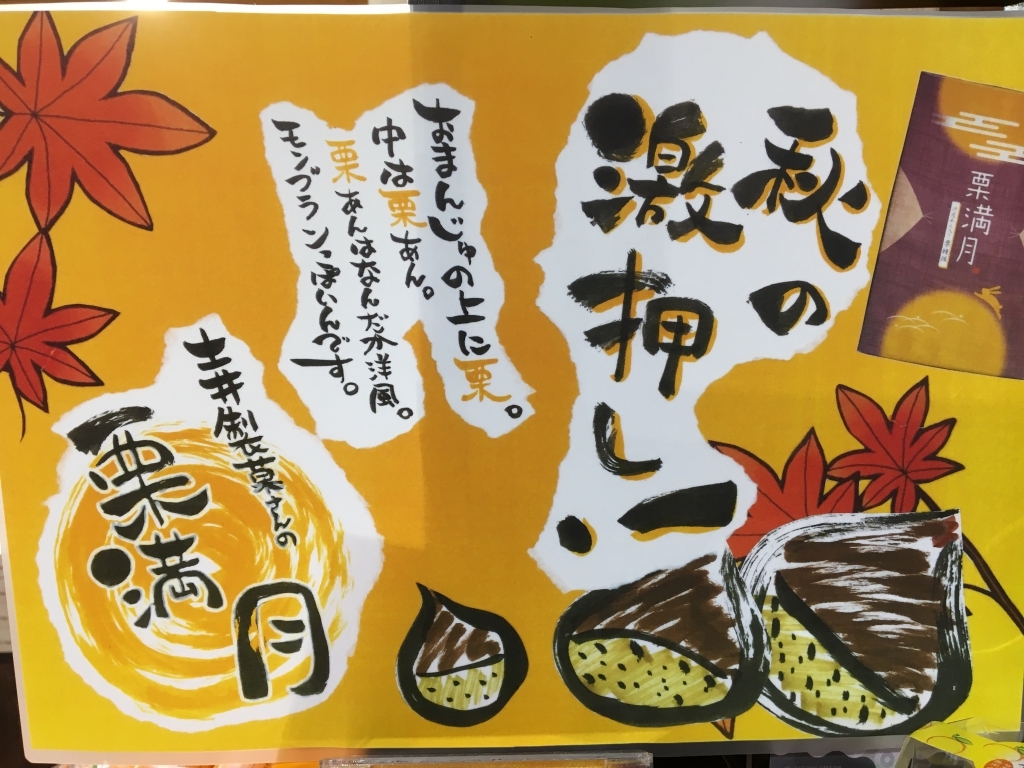 秋の
激押し!
おまんじゅの上に栗。
中は栗あん。
栗あんはなんだか洋風。
モンブランぽいんです。
土井製菓さんの
栗満月
栗満月